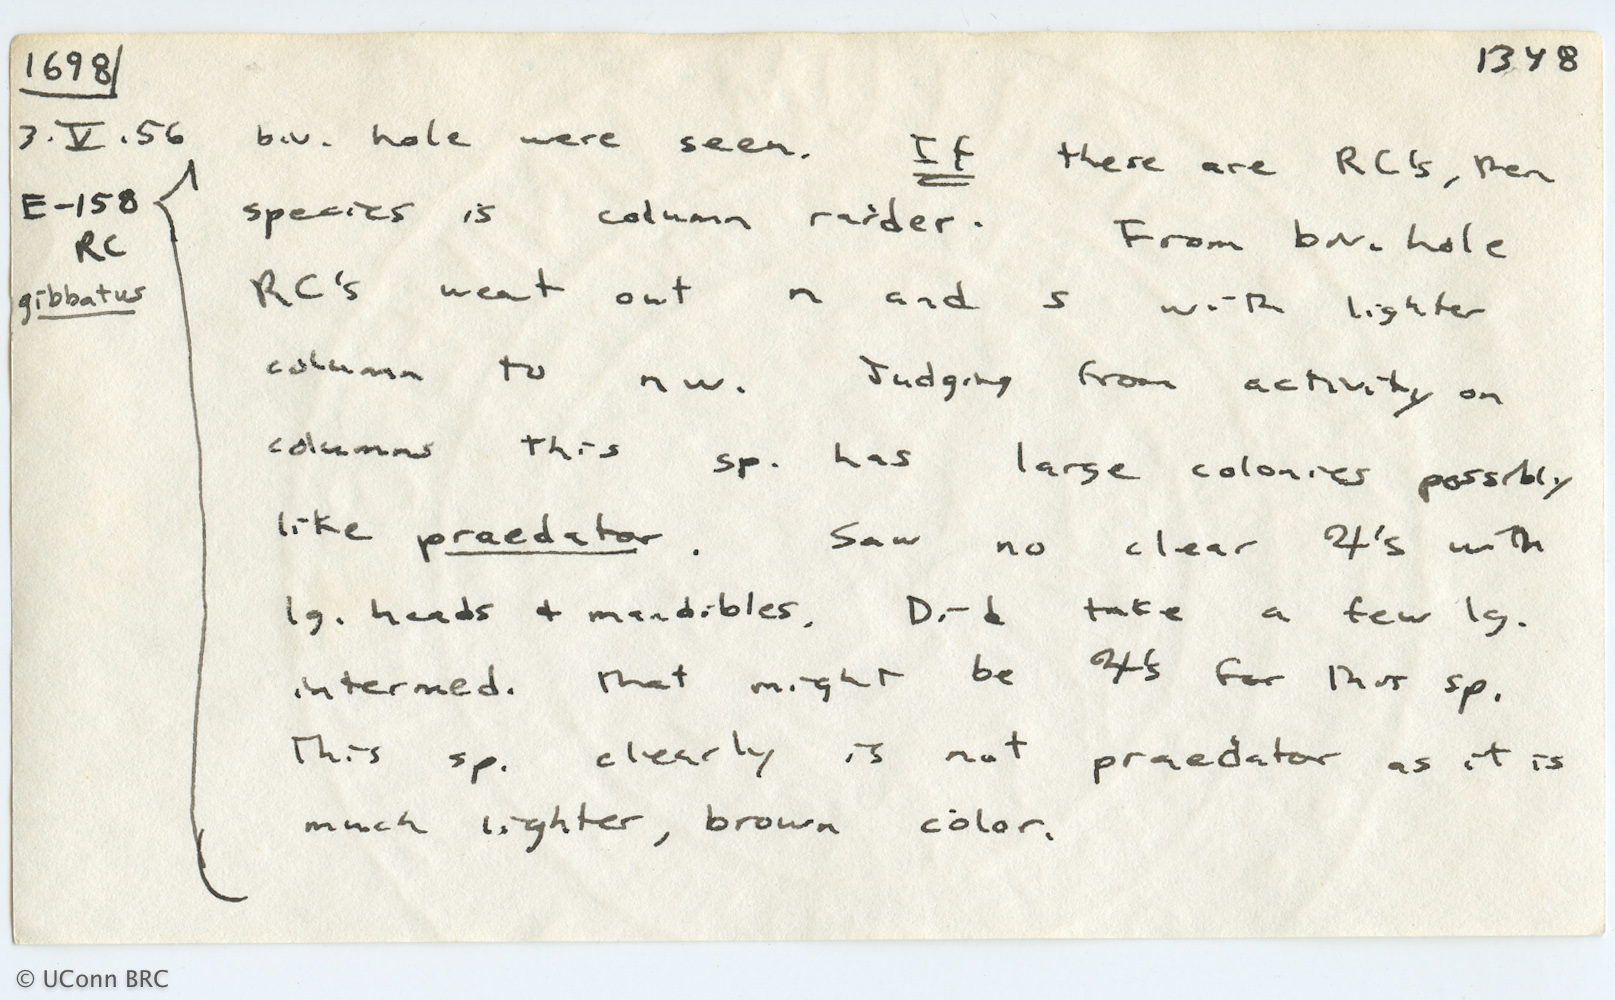 1698
1348
3.V.56
E-158
RC
gibbatus
b.v. hole were seen. If these are RC's, then
species is column raider. From b.v. hole
RC's went out n and s with lighter
column to nw. Judging from activity on
columns this sp. has large colonies possibly
like praedator. Saw no clear ♃'s with
lg. heads + mandibles. Did take a few lg.
intermed. that might be ♃'s for this sp.
This sp. clearly is not praedator as it is
much lighter, brown color.
© UConn BRC